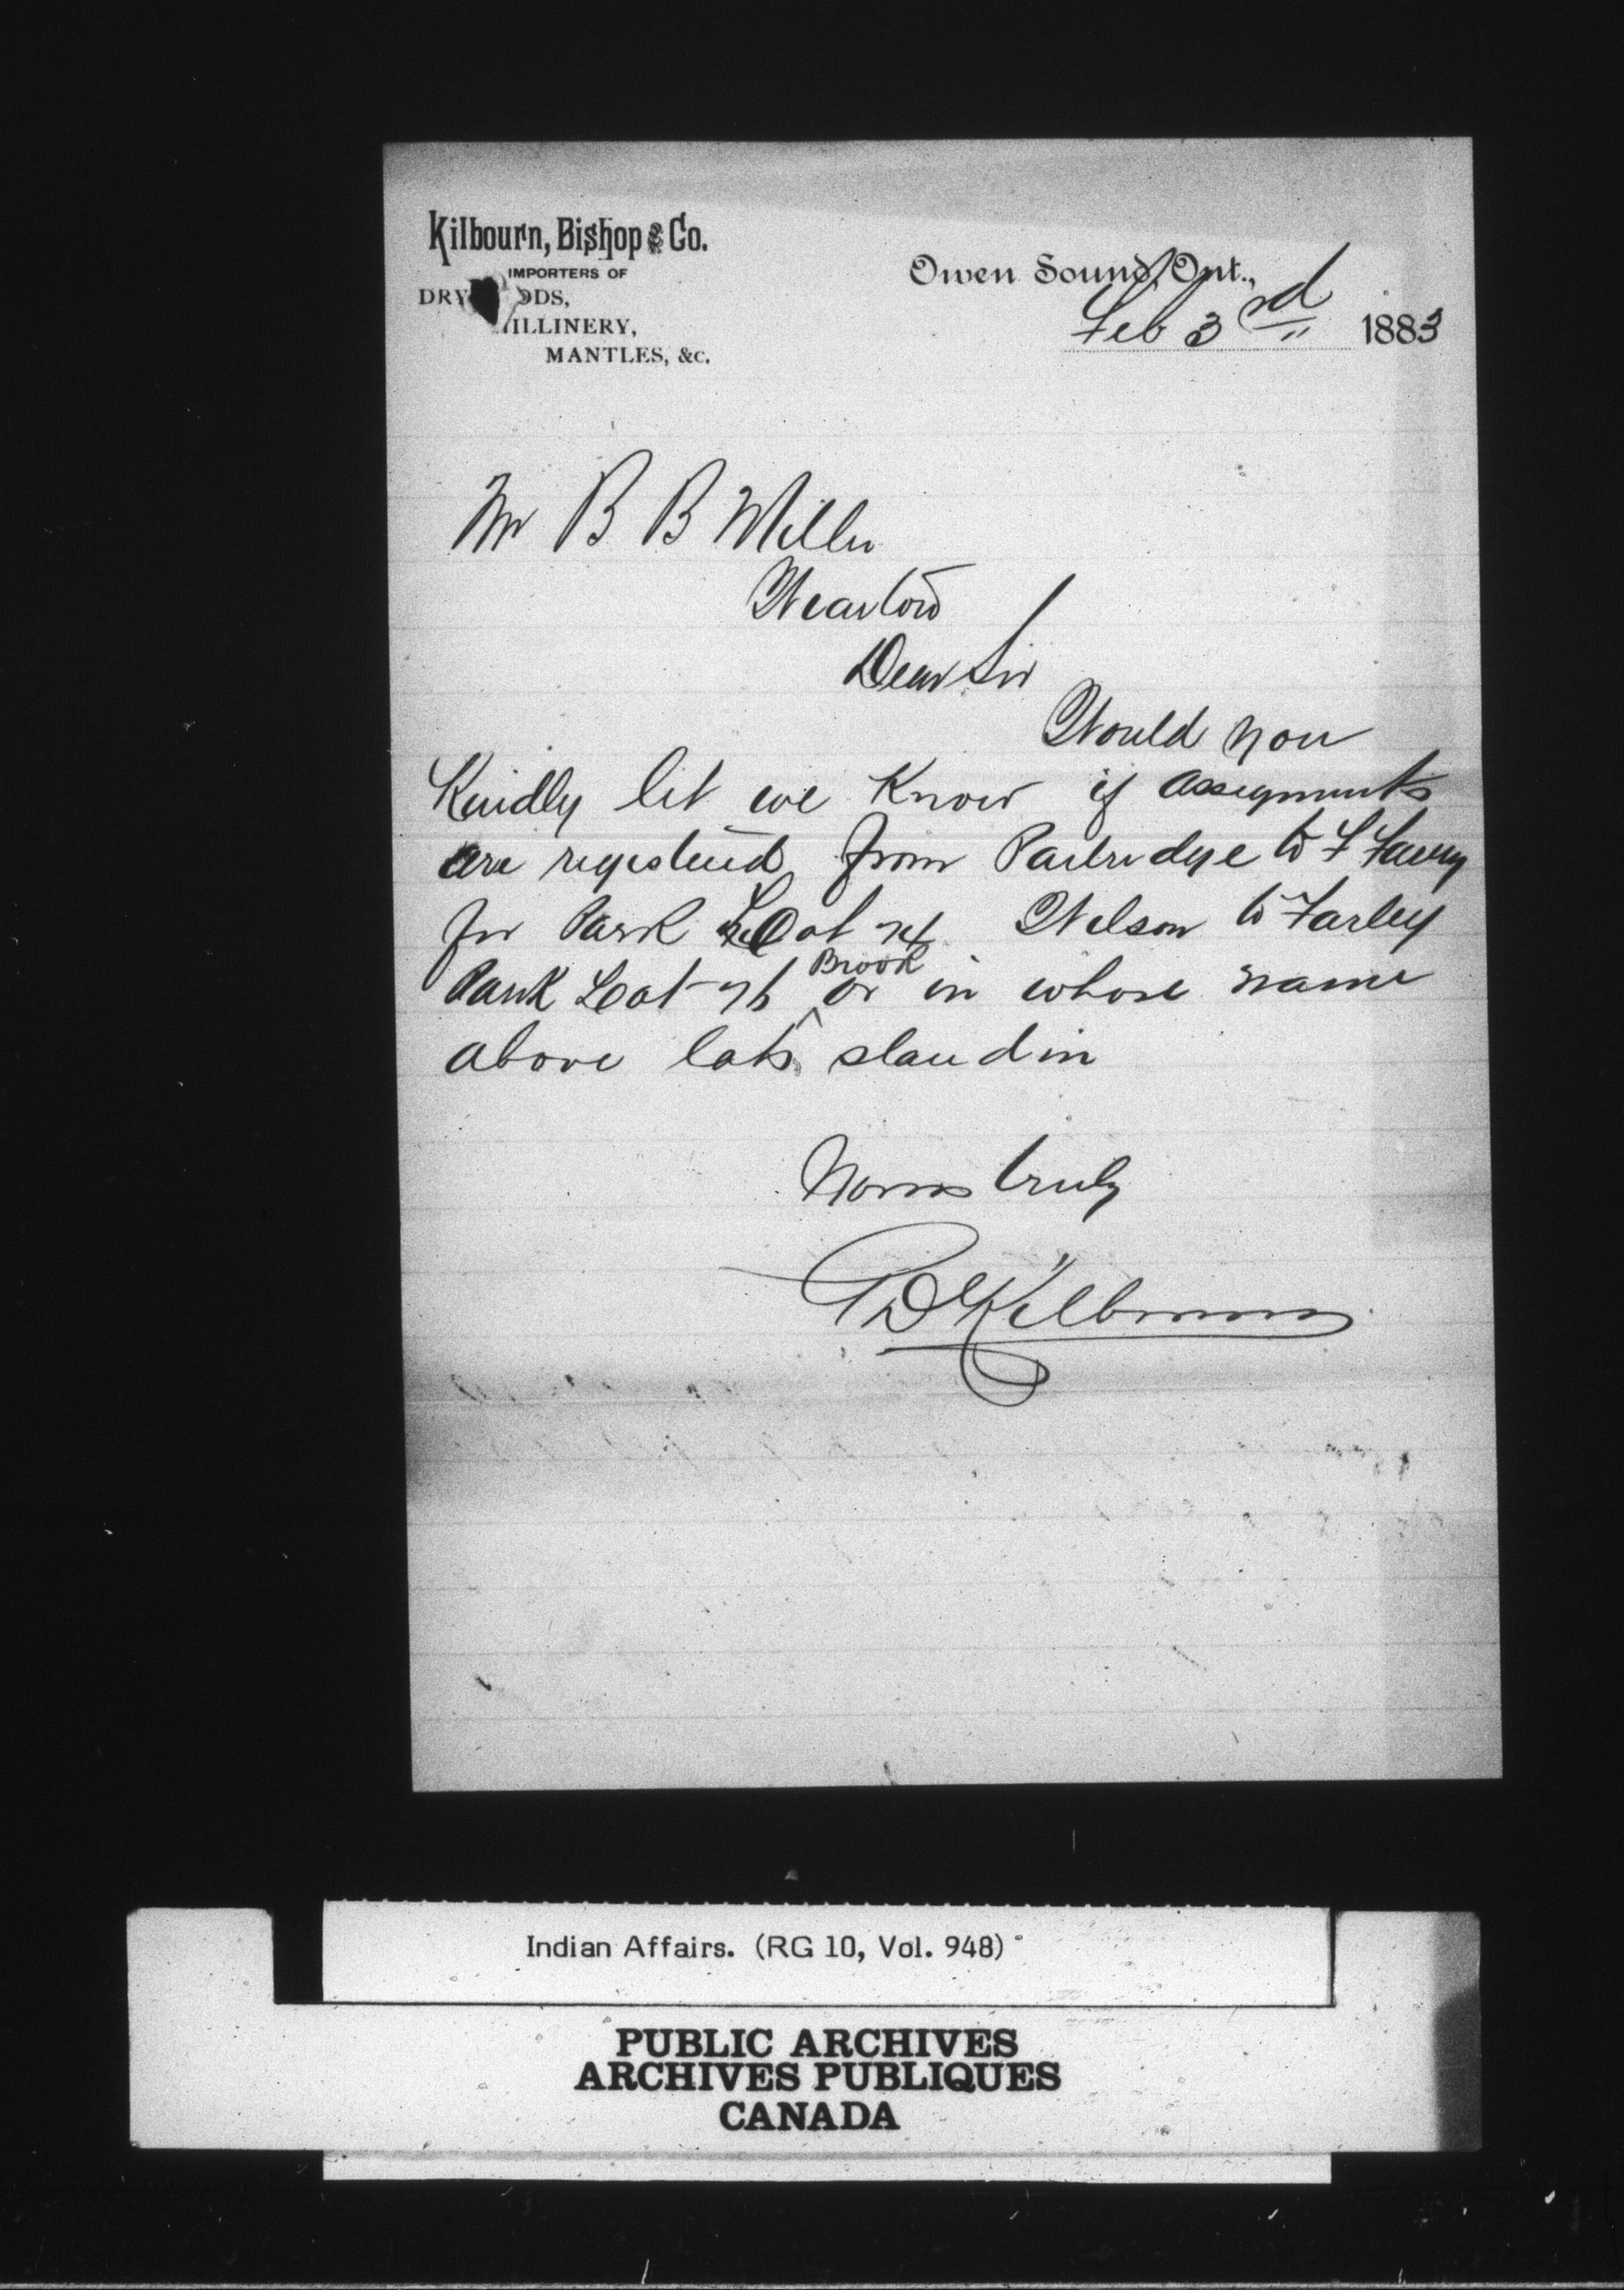 Kilbourn, Bishop & Co.
IMPORTERS OF
DRY OODS,
MILLINERY,
MANTLES, &c.
Owen Sound, Ont.,
Feb 3rd 1883
Mr B B Miller
Wiarton
Dear Sir
Would you
Kindly let me Know if assignments
are registered from Partridge to F
for Park Lot 74 Wilson to Farley
Park Lot 76 Brook or in whose name
above lots stand in
Yours truly
Kilbourn
Indian Affairs. (RG 10, Vol. 948)
PUBLIC ARCHIVES
ARCHIVES PUBLIQUES
CANADA